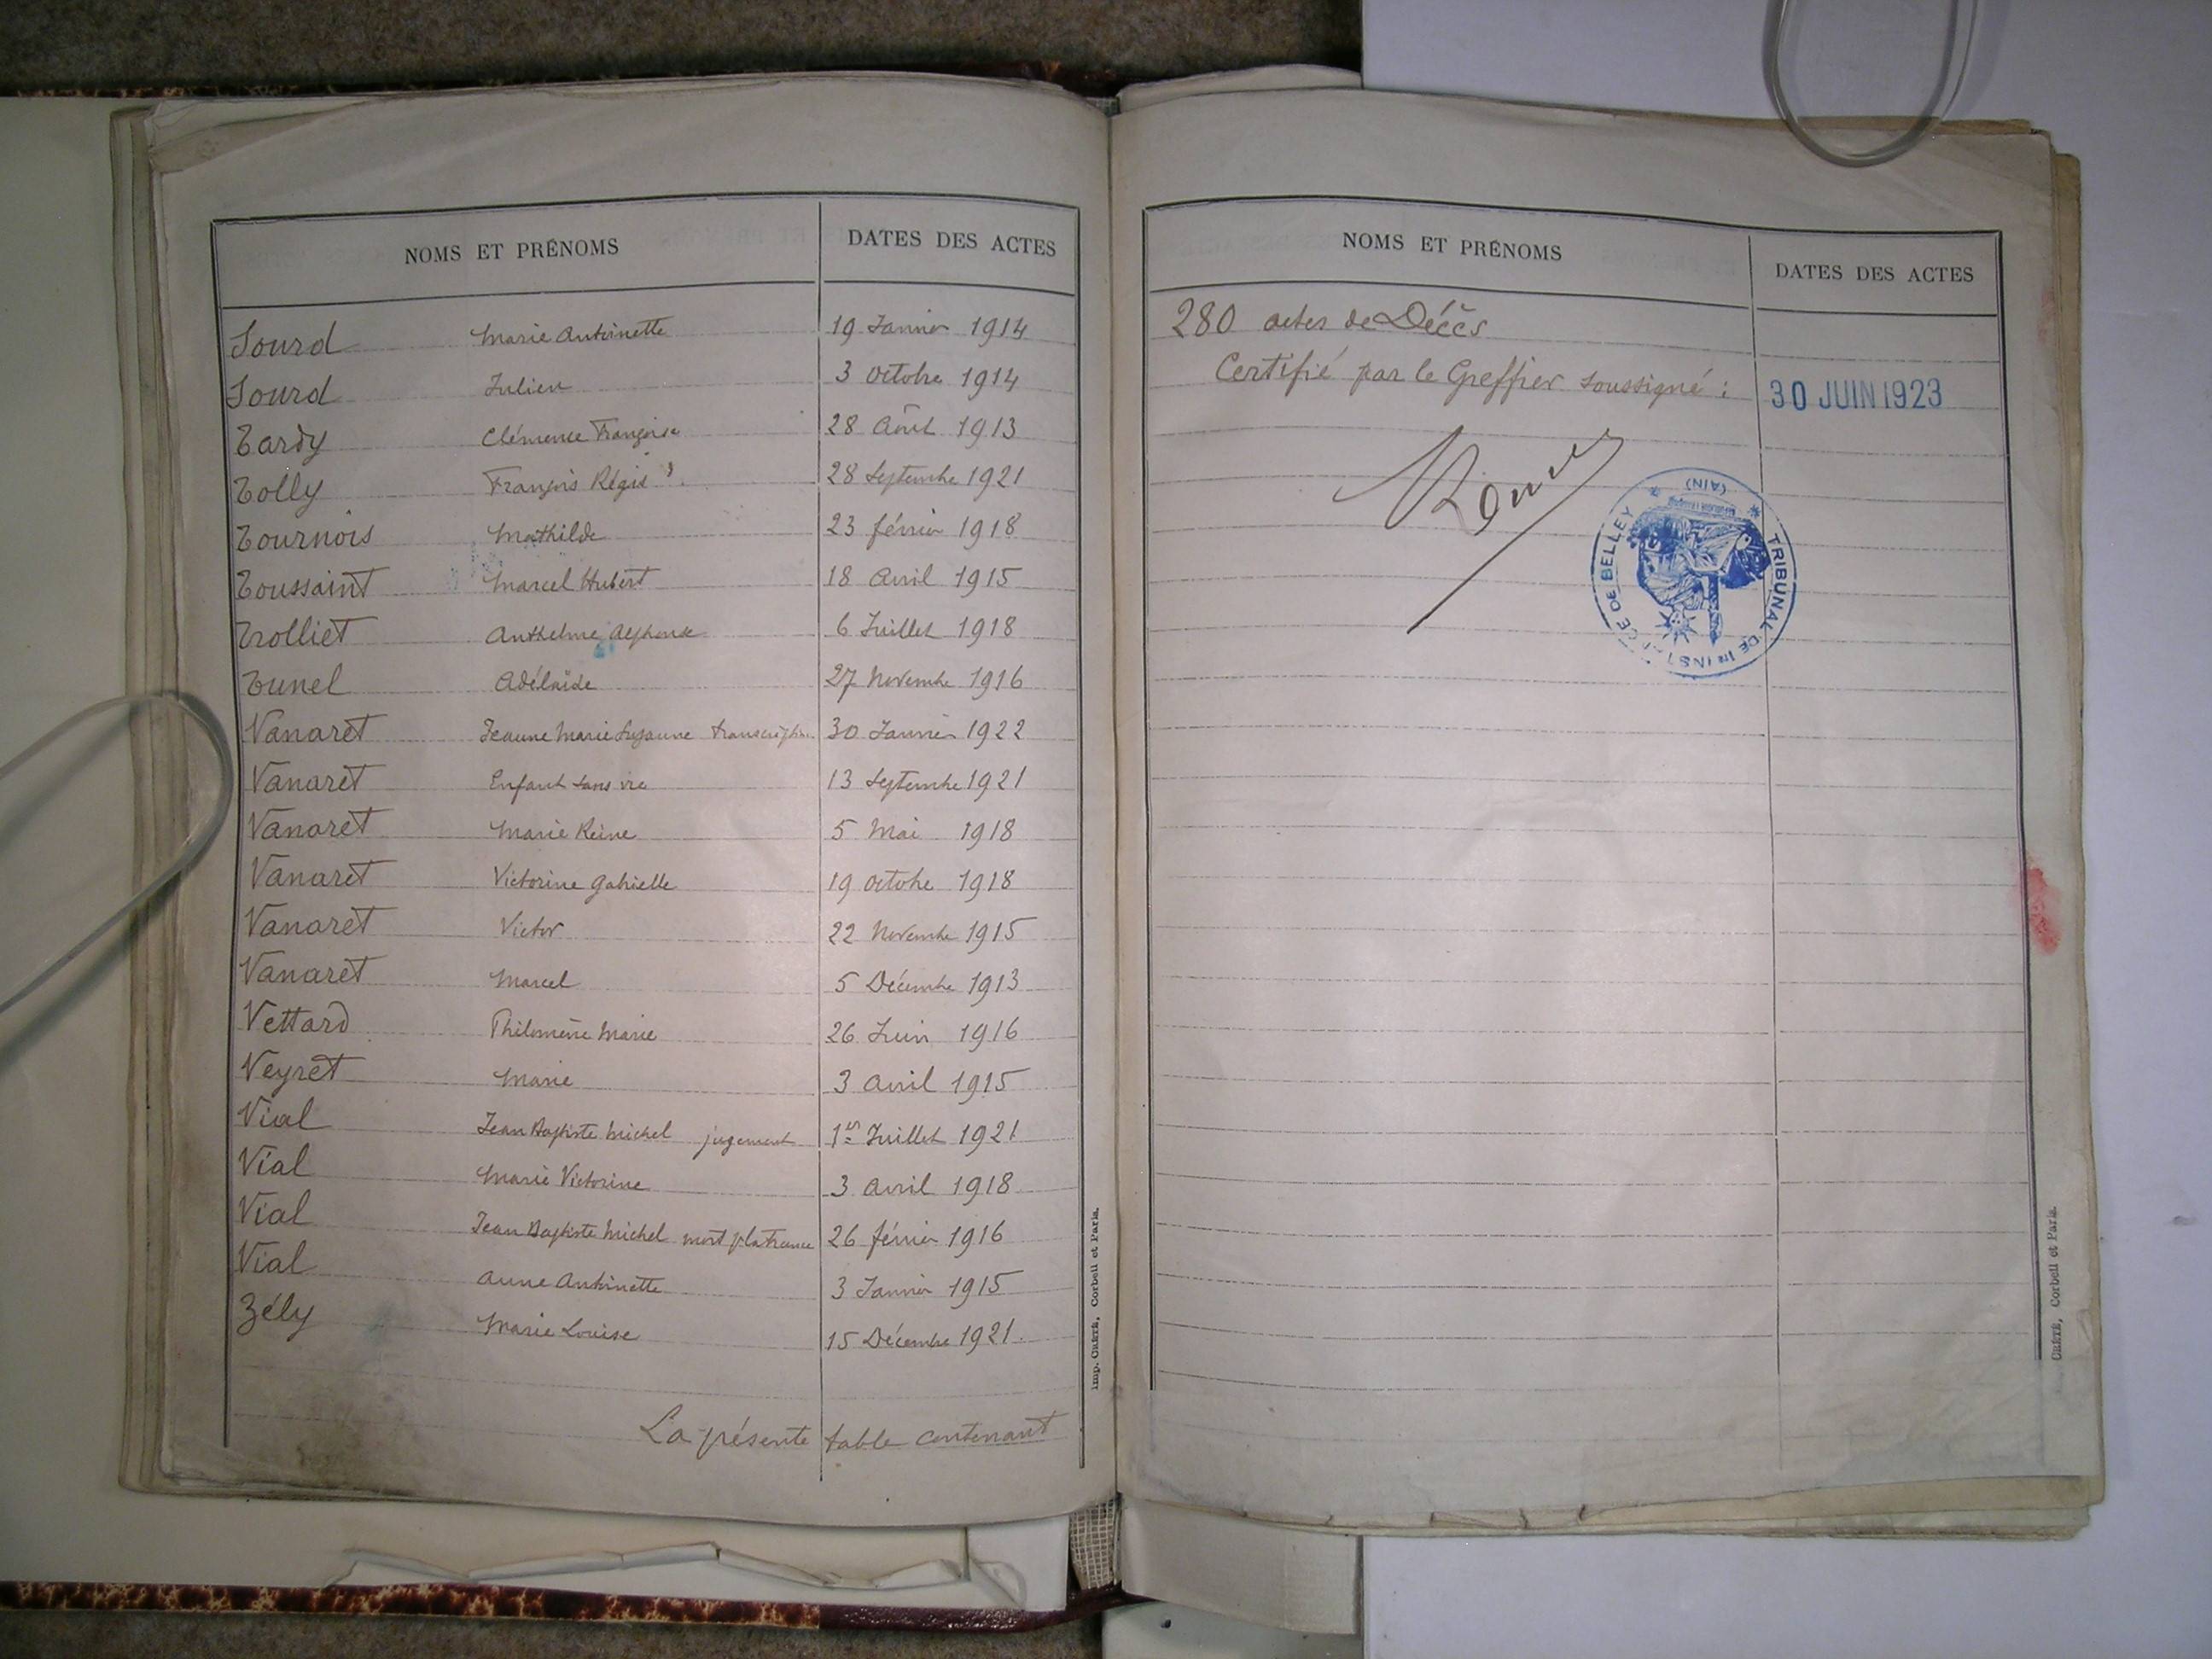 NOMS ET PRÉNOMS DATES DES ACTES
Sourd Marie Antoinette 19 Janvier 1914
Sourd Julien 3 Octobre 1914
Tardy Clémence Françoise 28 Août 1913
Tolly François Régis 28 Septembre 1921
Tournois Mathilde 23 février 1918
Toussaint Marcel Hubert 18 Avril 1915
Trolliet Anthelme Alphonse 6 Juillet 1918
Tunel Adélaïde 27 Novembre 1916
Vanaret Jeanne Marie Suzanne transcription 30 Janvier 1922
Vanaret Enfant sans vie 13 Septembre 1921
Vanaret Marie Reine 5 Mai 1918
Vanaret Victorine Gabrielle 19 Octobre 1918
Vanaret Victor 22 Novembre 1915
Vanaret Marcel 5 Décembre 1913
Vettard Philomène Marie 26 Juin 1916
Veyret Marie 3 Avril 1915
Vial Jean Baptiste Michel jugement 1er Juillet 1921
Vial Marie Victorine 3 Avril 1918
Vial Jean Baptiste Michel mort p la France 26 février 1916
Vial Anne Antoinette 3 Janvier 1915
Zély Marie Louise 15 Décembre 1921
La présente table contenant
Imp. CRÉTÉ, Corbeil et Paris.
NOMS ET PRÉNOMS DATES DES ACTES
280 actes de Décès
Certifié par le Greffier soussigné : 30 JUIN 1923
TRIBUNAL DE 1re INSTANCE DE BELLEY
(AIN)
CRÉTÉ, Corbeil et Paris.